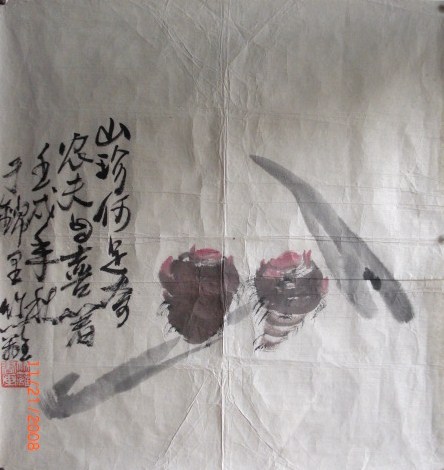 山珍何足奇
农夫自喜笑
壬戌年秋
于锦里
11/21/2008